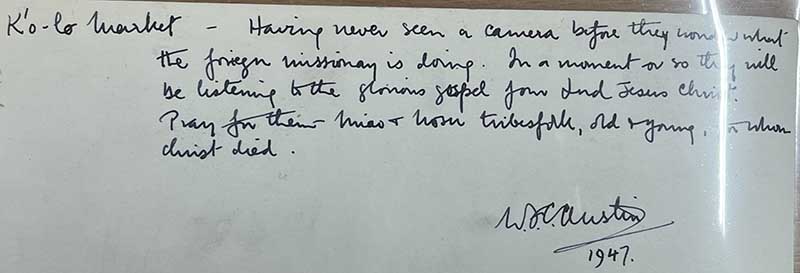 K'o-lo Market - Having never seen a camera before they wonder what
the foreign missionary is doing. In a moment or so they will
be listening to the glorious gospel of our Lord Jesus Christ.
Pray for them - Miao & Nosu tribesfolk, old & young, for whom
Christ died.
W.F.C. Austin
1947.